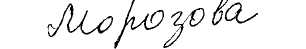 Морозова